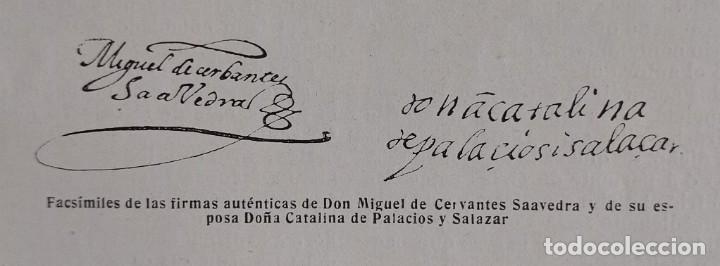 Miguel de cerbantes
Saavedra
donācatalina
depalaçiosisalaçar.
Facsímiles de las firmas auténticas de Don Miguel de Cervantes Saavedra y de su es-
posa Doña Catalina de Palacios y Salazar
todocoleccion